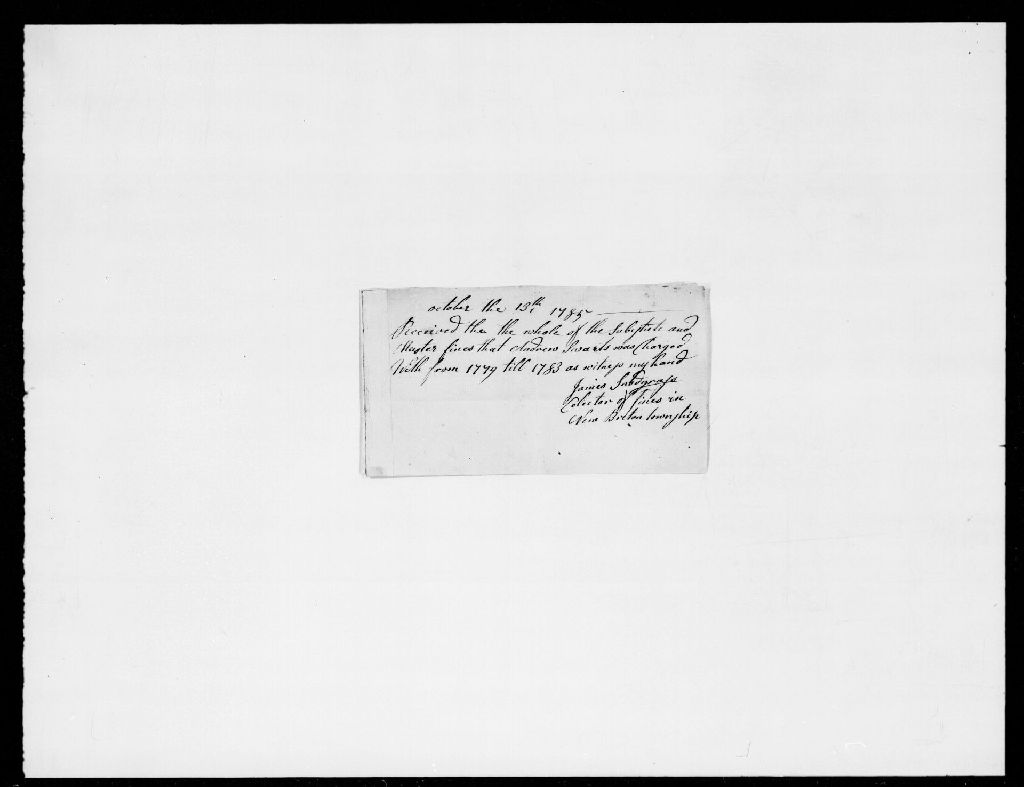 october the 13th 1785
Received the the whole of the Substute and
Muster fines that Andrew Swarts was Charged
With from 1779 till 1783 as witness my hand
James Snodgrass
Colector of fines in
New Briton township